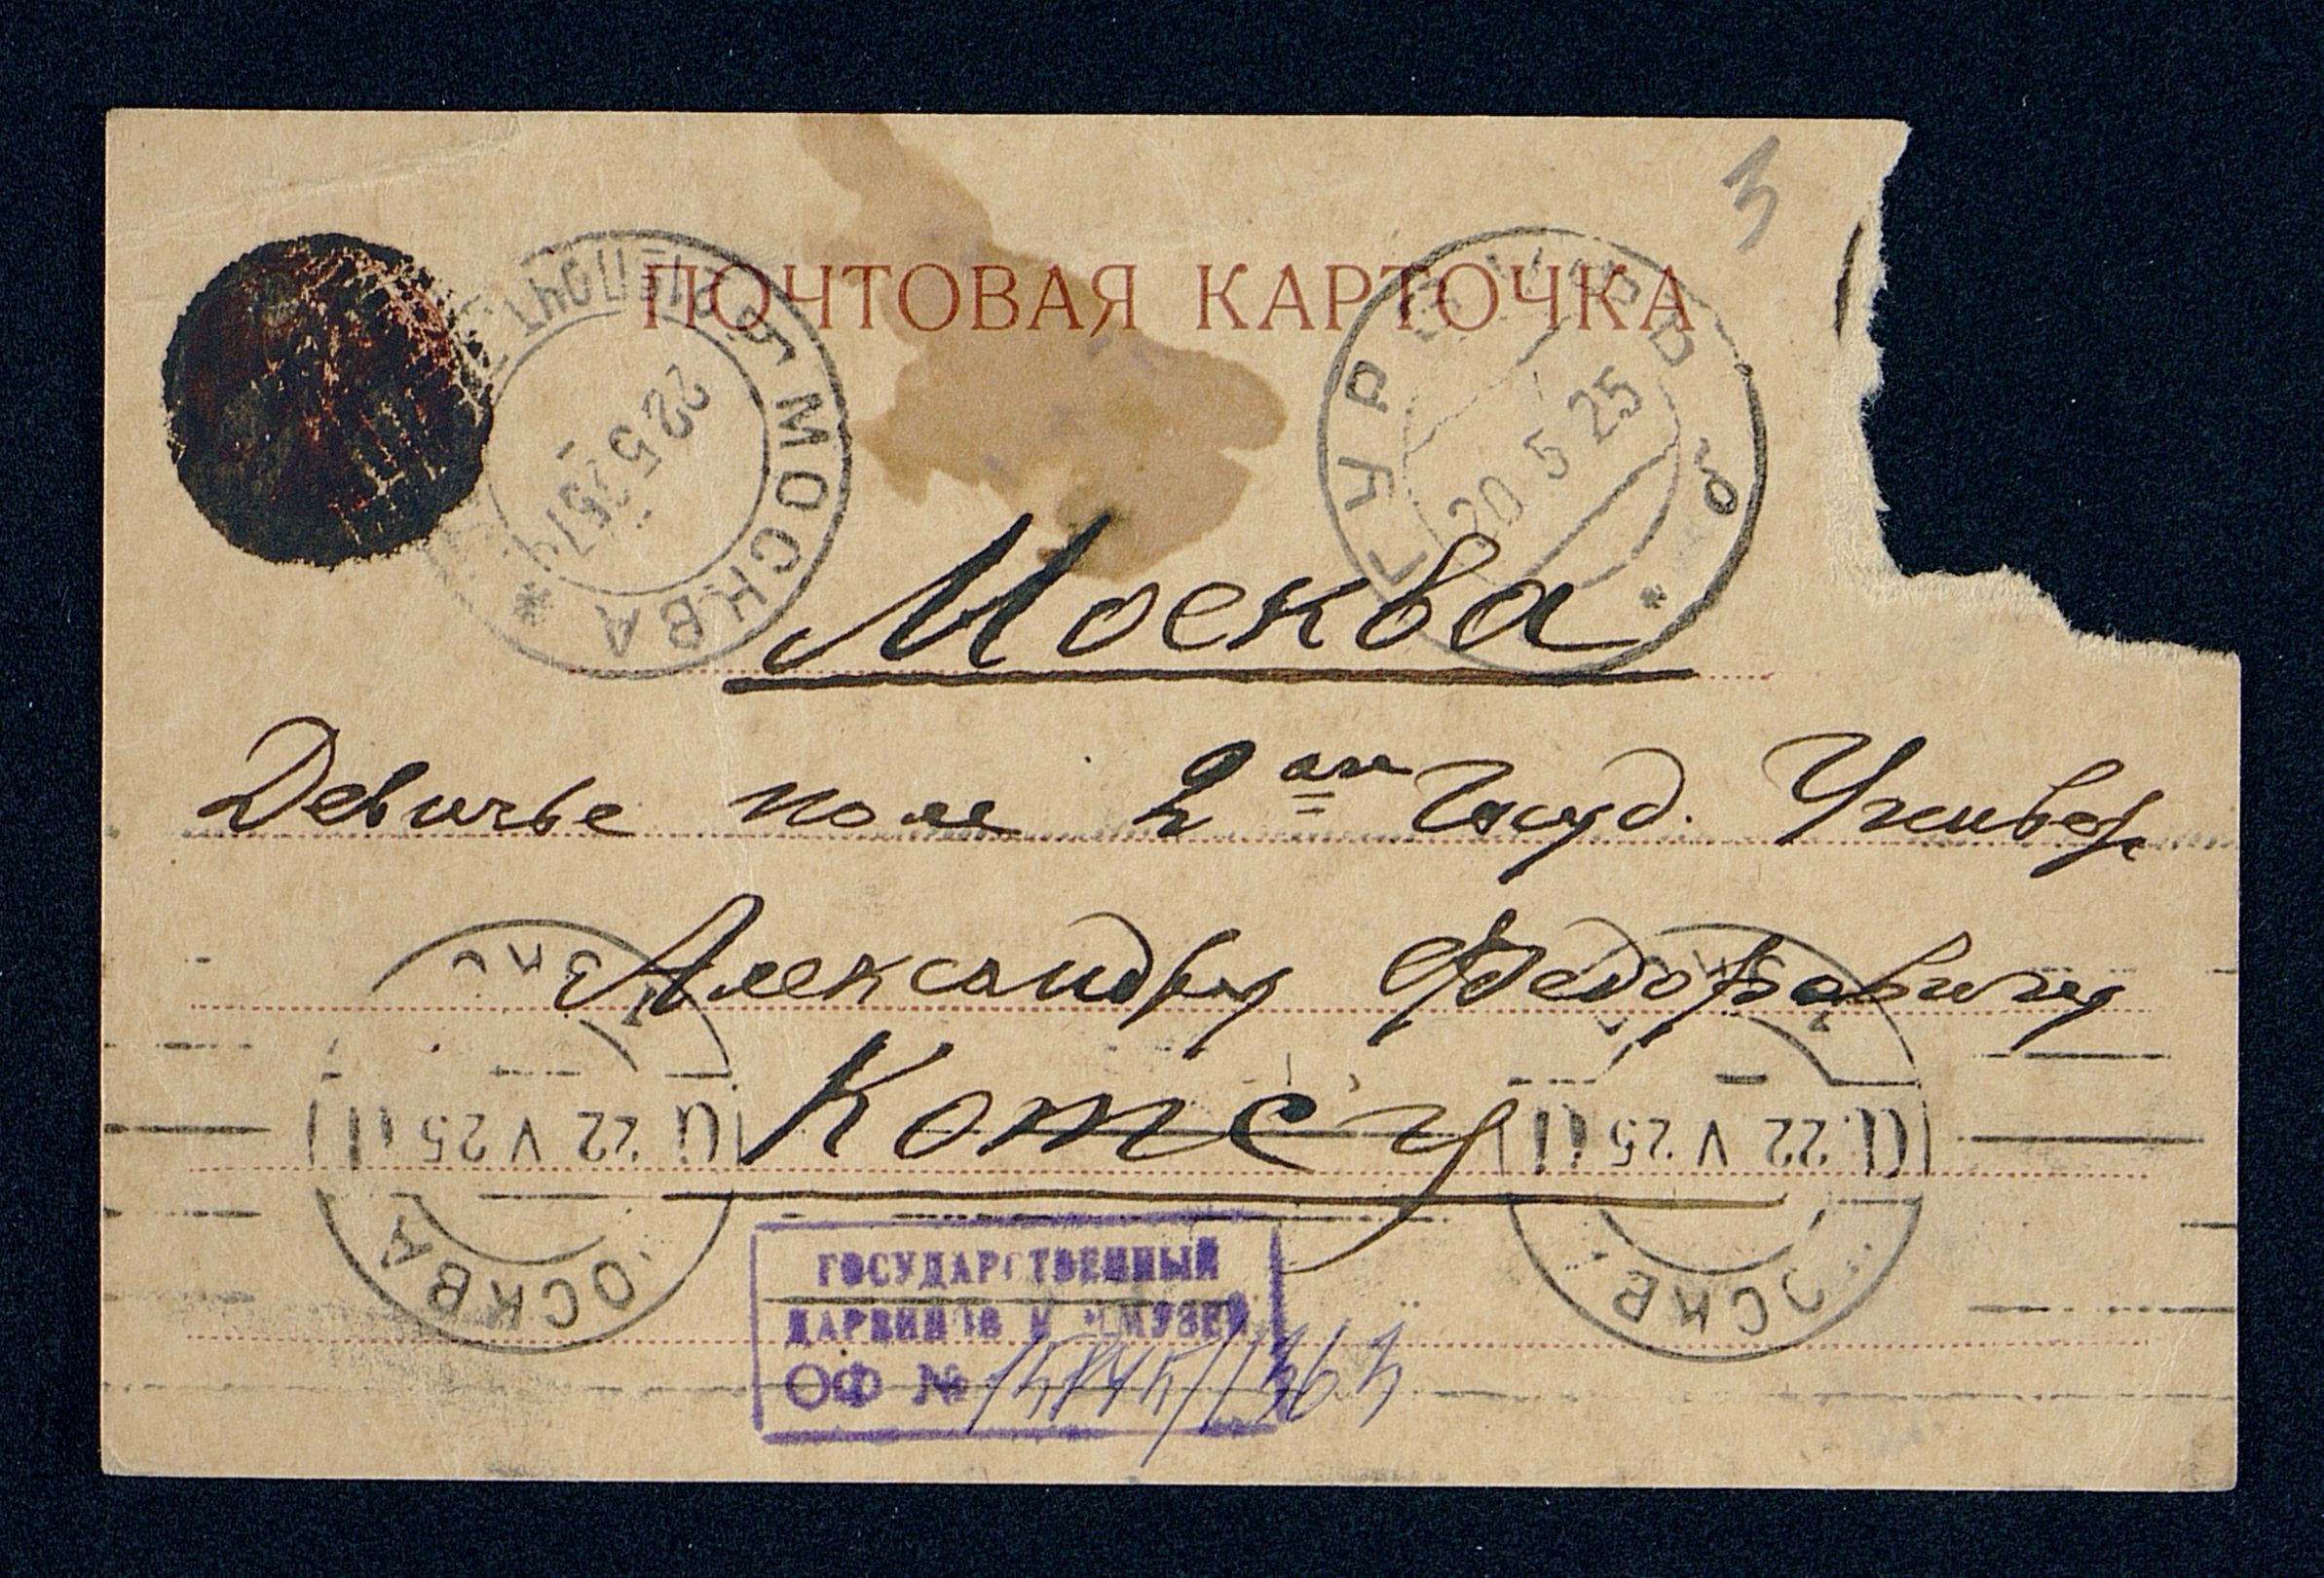 3
ПОЧТОВАЯ КАРТОЧКА
МОСКВА
22 5 25
ГУРЗУФ
20 5 25
Москва
Девичье поле 2ой Госуд. Универ
Александру Федоровичу
Котсу
22 V 25
22 V 25
ОСКВА
ОСКВ
ГОСУДАРСТВЕННЫЙ
ДАРВИНОВСКИЙ МУЗЕЙ
ОФ №